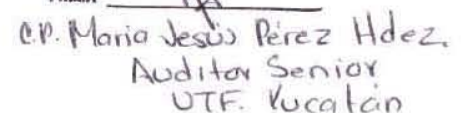 C.P. Maria Jesús Pérez Hdez.
Auditor Senior
UTF. Yucatán